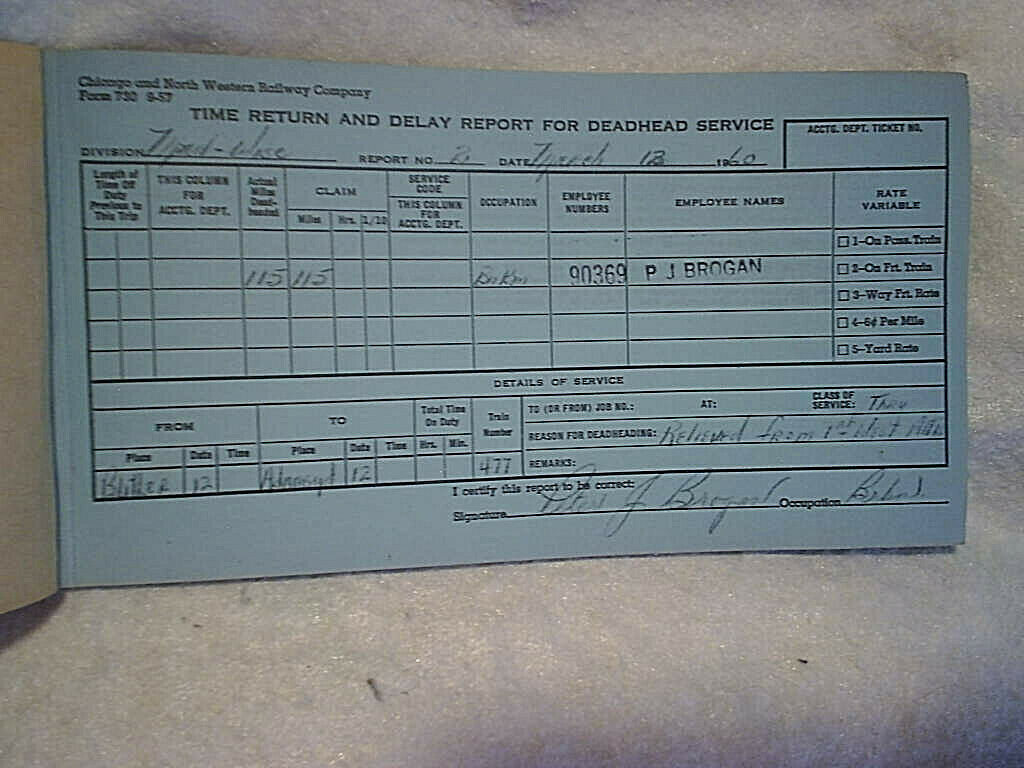 Chicago and North Western Railway Company
Form 730 8-57
TIME RETURN AND DELAY REPORT FOR DEADHEAD SERVICE
ACCTG. DEPT. TICKET NO.
DIVISION REPORT NO. 2 DATE March 12 1960
Length of Time Off Duty Previous to This Trip
THIS COLUMN FOR ACCTG. DEPT.
Actual Miles Dead-headed
CLAIM
Miles Hrs. 1/10
SERVICE CODE
THIS COLUMN FOR ACCTG. DEPT.
OCCUPATION
EMPLOYEE NUMBERS
EMPLOYEE NAMES
RATE VARIABLE
1-On Pass. Train
115 115 90369 P J BROGAN 2-On Frt. Train
3-Way Frt. Rate
4-6¢ Per Mile
5-Yard Rate
DETAILS OF SERVICE
FROM TO Total Time On Duty Train Number
Place Date Time Place Date Time Hrs. Min.
Butler 12 12 477
TO (OR FROM) JOB NO.: AT: CLASS OF SERVICE: Thru
REASON FOR DEADHEADING: Relieved from 1st West
REMARKS:
I certify this report to be correct:
Signature Peter J Brogan Occupation